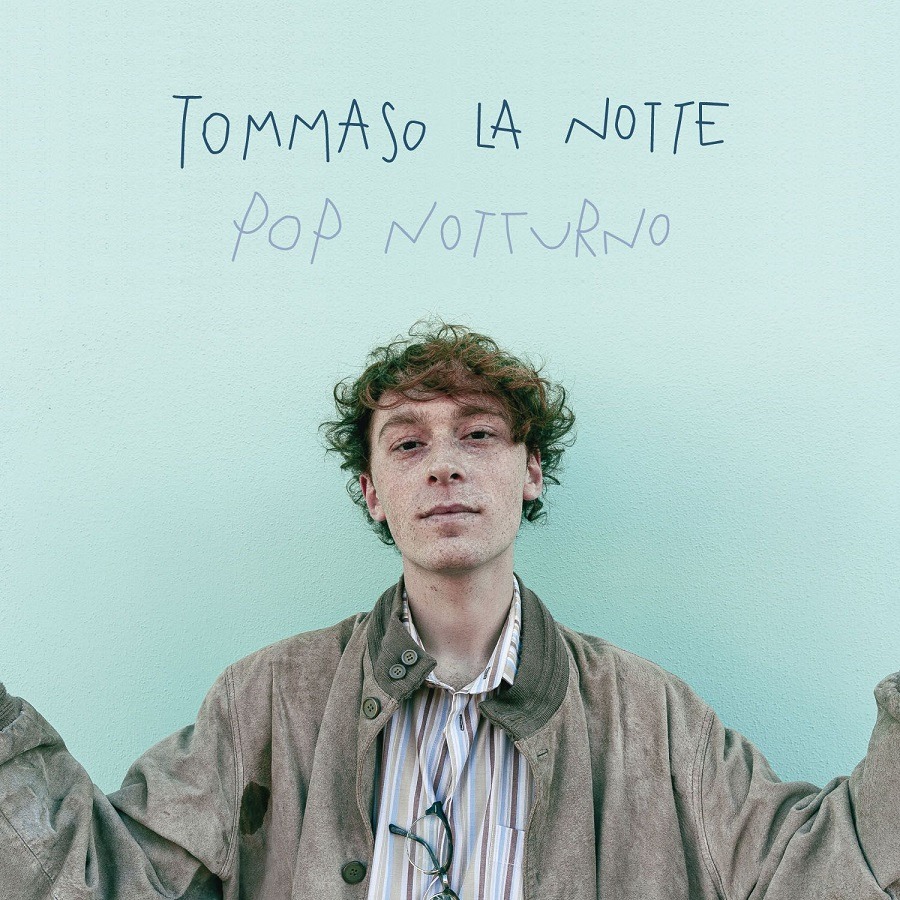 TOMMASO LA NOTTE
POP NOTTURNO